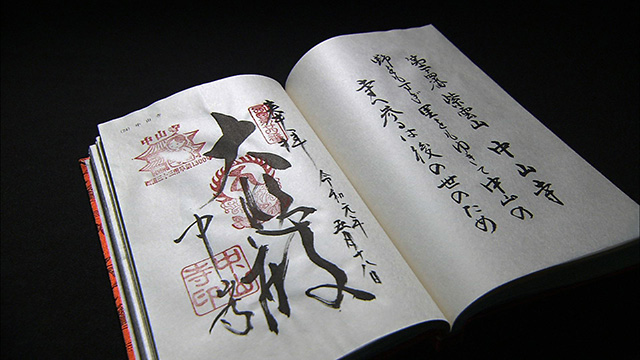 宝塚 紫雲山 中山寺
野をもすぎ里をもゆきて中山の
寺へ参るは後の世のため
(24) 中山寺
中山寺
奉拝
令和元年五月十八日
大悲殿
中山寺
中山寺印